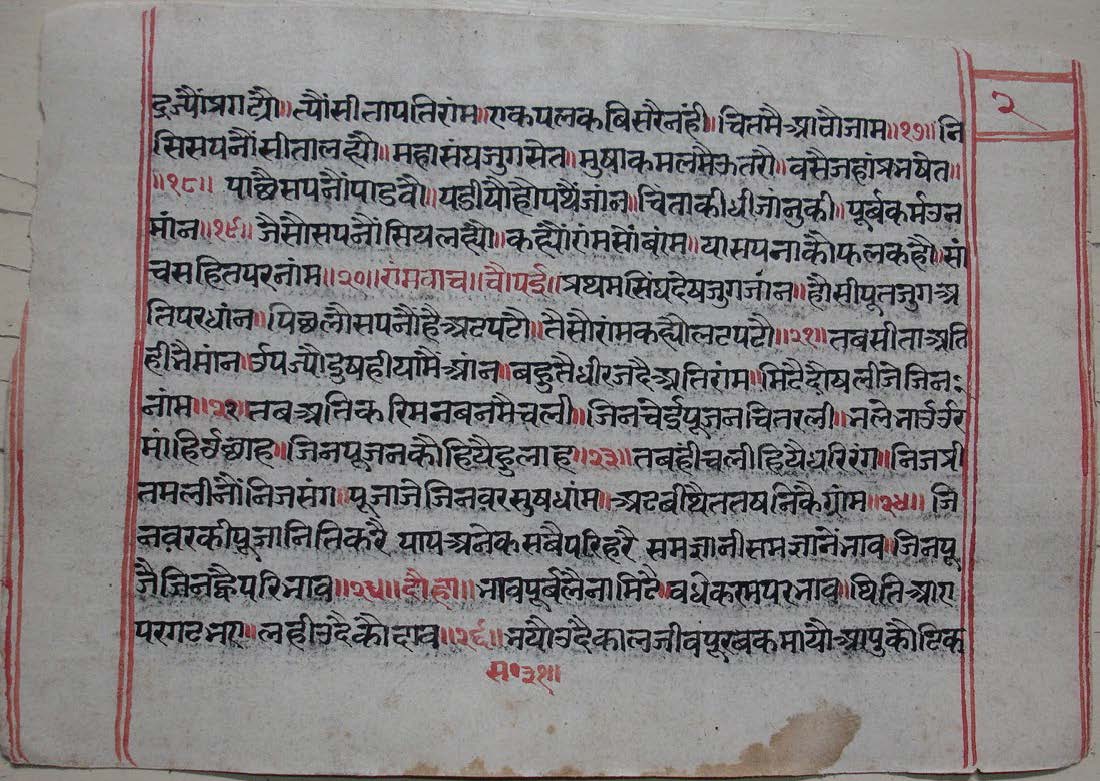 २
द्रज्यौंप्रगट्यौ॥त्यौंसीतापतिरांम॥राकपलकबिसरैनंही॥चितमैआवौजाम॥१७॥नि
सिसपनौंसीतालह्यौ॥महासंघजुगसेत॥मुषाकमलमैऊतरौ॥वसैजहांभ्रमषेत॥
॥१८॥ पाछैसपनौंपाडवौ॥पडीयौहौपथैंजांन॥चिताकीधीजांनुकी॥पूर्बकर्मउन
मांन॥१९॥जैसौसपनौंसियलह्यौ॥कह्यौरांमसौंबांम॥यासपनाकौफलकहौ॥सां
चसहितपरनांम॥२०॥रांमवाच॥चौपई॥प्रथमसिंघदेषजुगजांन॥हौसीपूतजुगअ
तिपरधांन॥पिछलौसपनौंहैअटपटौ॥तैसौरांमकह्यौलटपटौ॥२१॥तबसीताअति
हीभैमांन॥उपज्यौदुषहीयामैंआंन॥बहुतैधीरजदैअतिरांम॥मिटैदोषलीजेजिन
नांम॥२२॥तबअतिकरिमनबनमैचली॥जिनचेईपूजनचितरली॥भलेभाउउर
मांहिउछाह॥जिनपूजनकौहियैहुलाह॥२३॥तबहीचलीहियैधरिरंग॥निजप्री
तमलीनौंनिजसंग॥पूजाजेजिनवरसुषधांम॥अटबीथैततषनिकैग्रांम॥२४॥ जि
नवरकीपूजानितिकरै पापअनेकसबैपरिहरै समज्ञानीसमज्ञानेभाव॥जिनपू
जैजिनह्वैपरिभाव॥२५॥दोहा॥भावपूर्बलैनामिटै॥वधेकरमपरभाव॥थितिआरा
परगटभरा॥लहीउदैकौदाव॥२६॥भयौउदैकालजीवपुरबकमायौआपुकौटिक
म॰३१॥